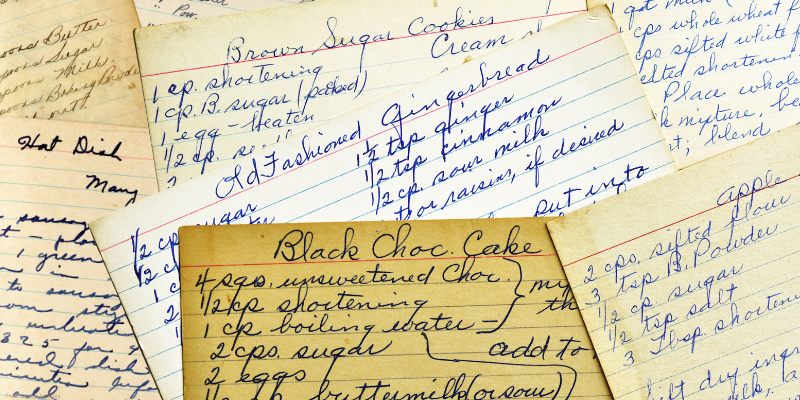 Butter
Sugar
Milk
Baking Powde
Pow.
Brown Sugar Cookies
Cream
1 cp. shortening
1 cp B. sugar (packed)
1 egg - beaten
1/2 cp.
cps whole wheat f
cps sifted white f
shortenin
Place whole
mixture, be
blend
Hot Dish
Mary
sausag
1 green
in
to sausag
325 for
dish
add
Old Fashioned Gingerbread
1/2 cp sugar
1/2 c
1 c
1 1/2 tsp ginger
1/2 tsp cinnamon
1/2 cp. sour milk
or raisins, if desired
put into
Black Choc. Cake
4 sqs. unsweetened Choc.
1/2 cp shortening
1 cp boiling water
2 cps. sugar
2 eggs
buttermilk (or sour)
add to
apple
2 cps. sifted flour
3 tsp B. Powder
1/2 cp sugar
1/2 tsp salt
3 Tbsp. shorteni
ift dry ingr